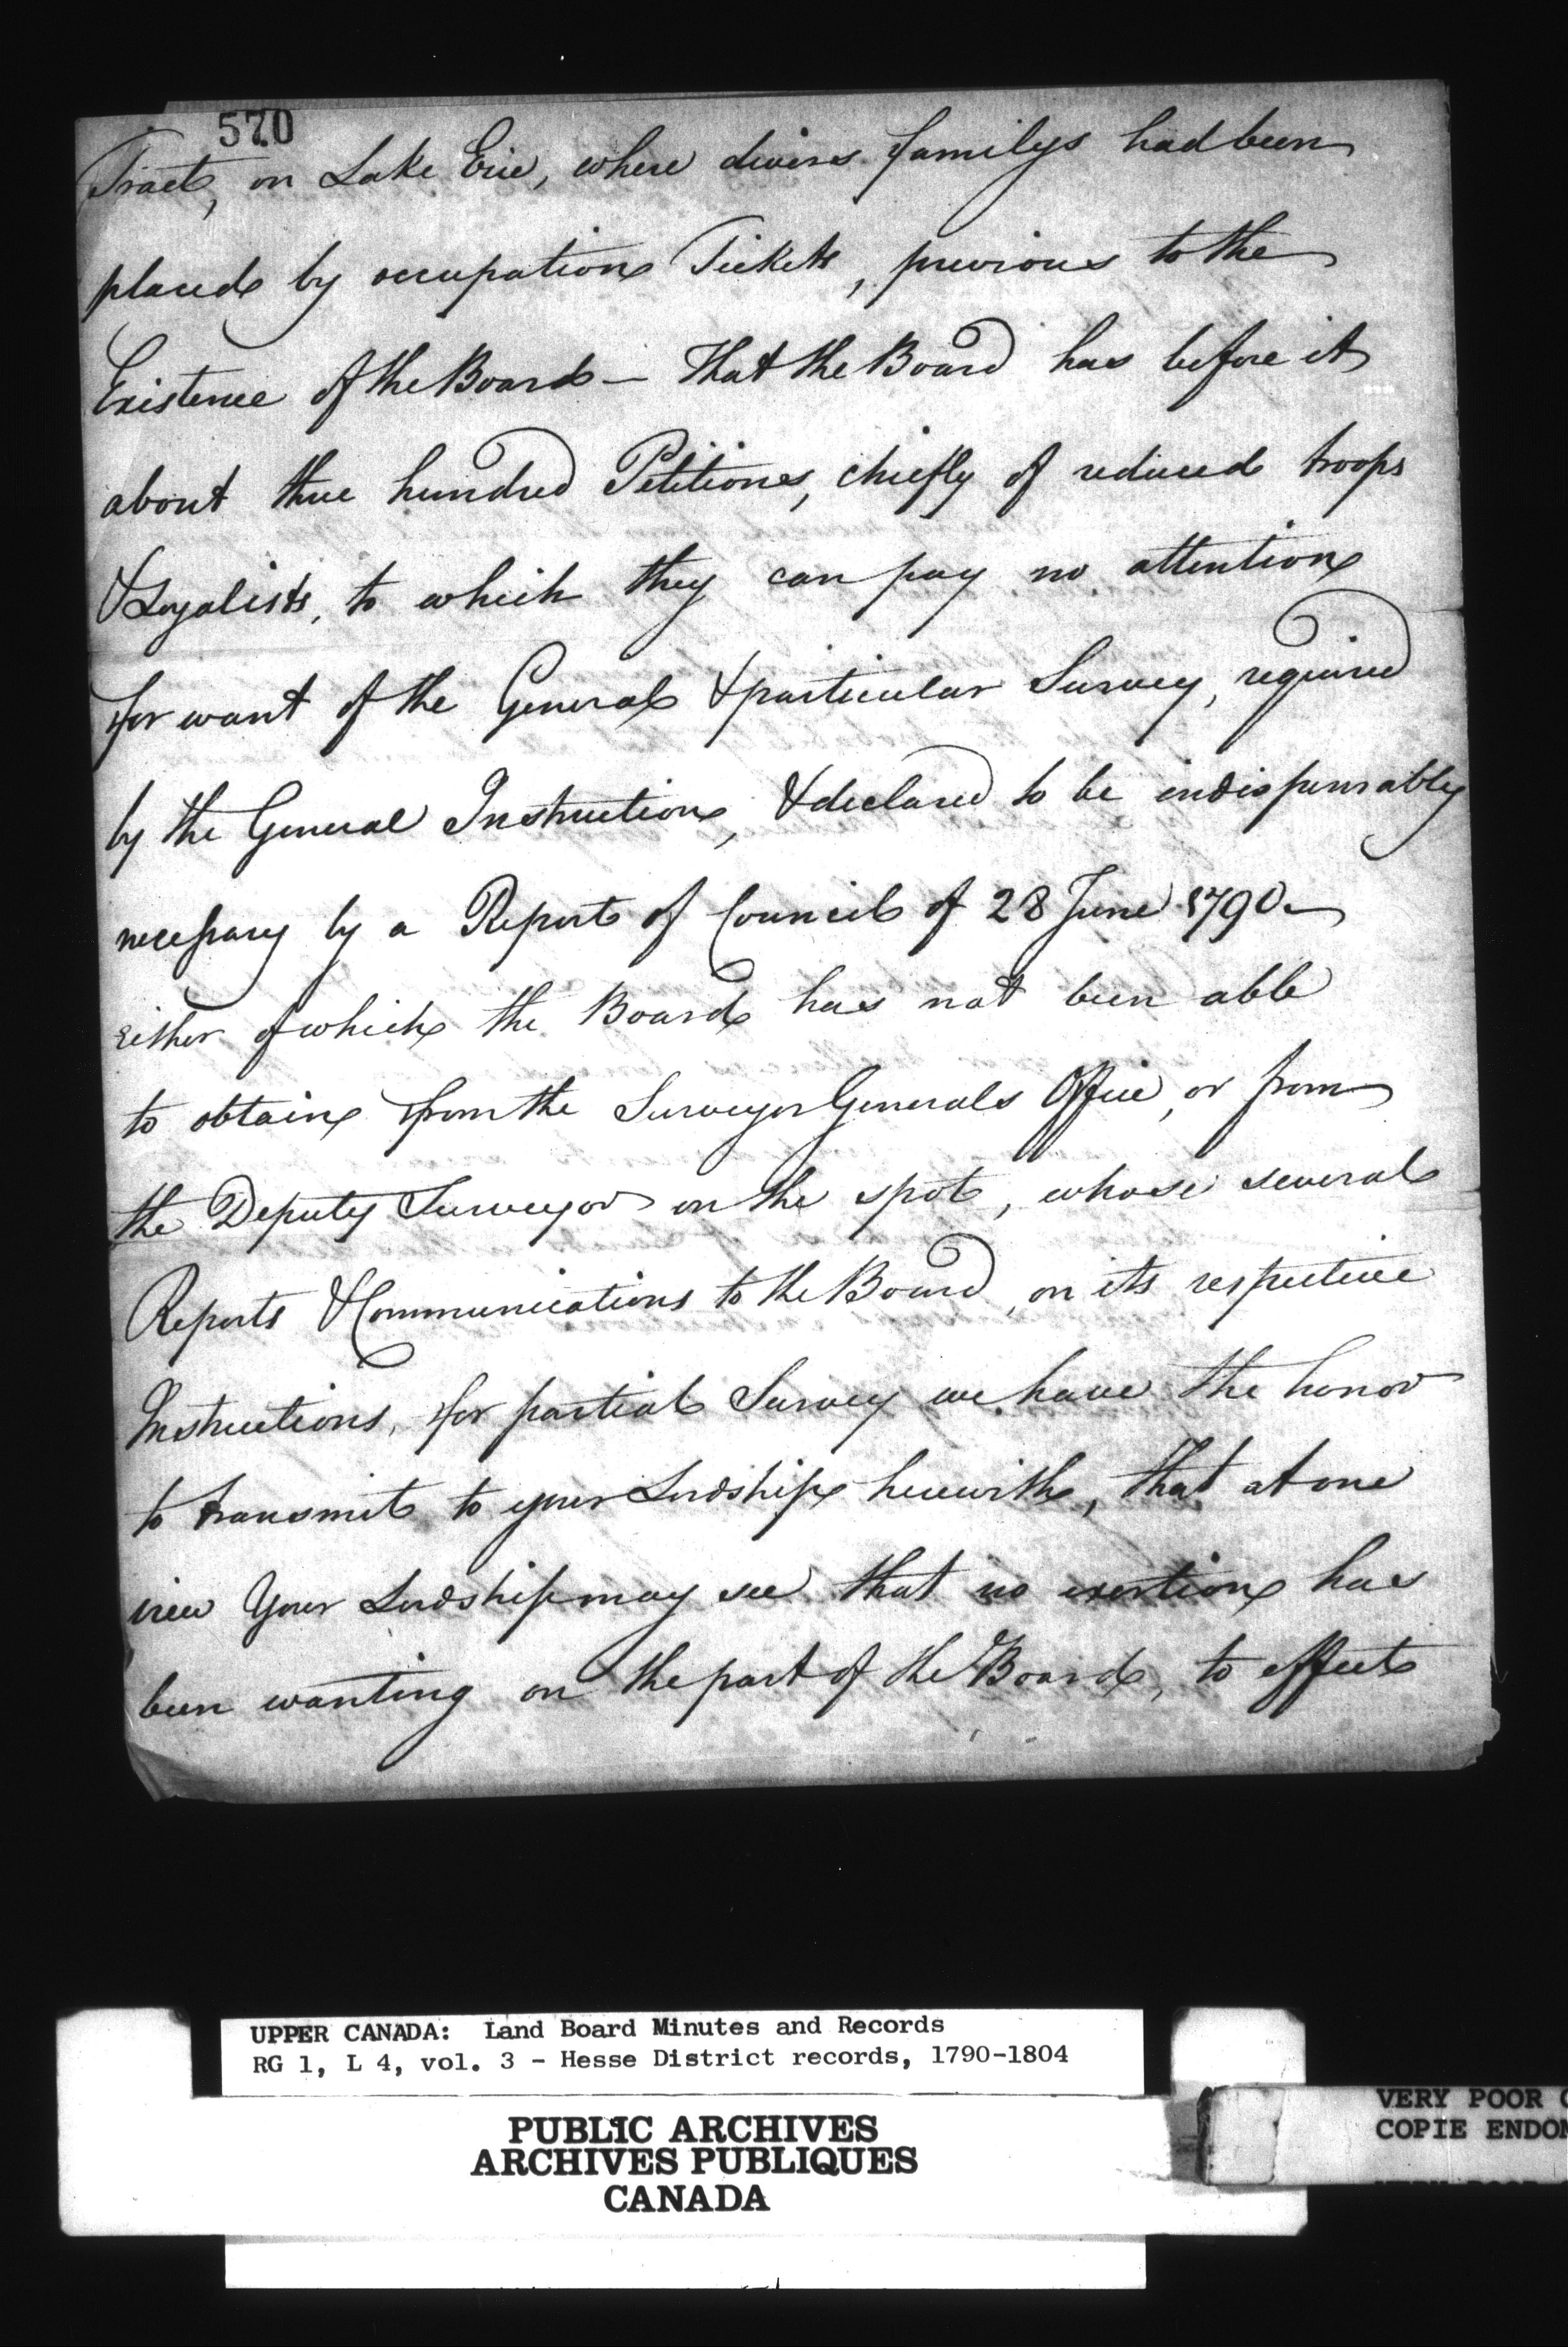 570
Tract, on Lake Erie, where divers familys had been
placed by occupation Tickets, previous to the
Existence of the Board — That the Board has before it
about three hundred Petitions, chiefly of reduced troops
& Loyalists, to which they can pay no attention
for want of the General & particular Survey, required
by the General Instructions, & declared to be indispensably
necessary by a Report of Council of 28 June 1790 —
either of which the Board has not been able
to obtain from the Surveyor Generals Office, or from
the Deputy Surveyor on the spot, whose several
Reports & Communications to the Board, on its respective
Instructions, for partial Survey we have the honor
to transmit to your Lordship herewith, that at one
view Your Lordship may see that no exertion has
been wanting on the part of the Board, to effect
UPPER CANADA: Land Board Minutes and Records
RG 1, L 4, vol. 3 - Hesse District records, 1790-1804
PUBLIC ARCHIVES
ARCHIVES PUBLIQUES
CANADA
VERY POOR
COPIE